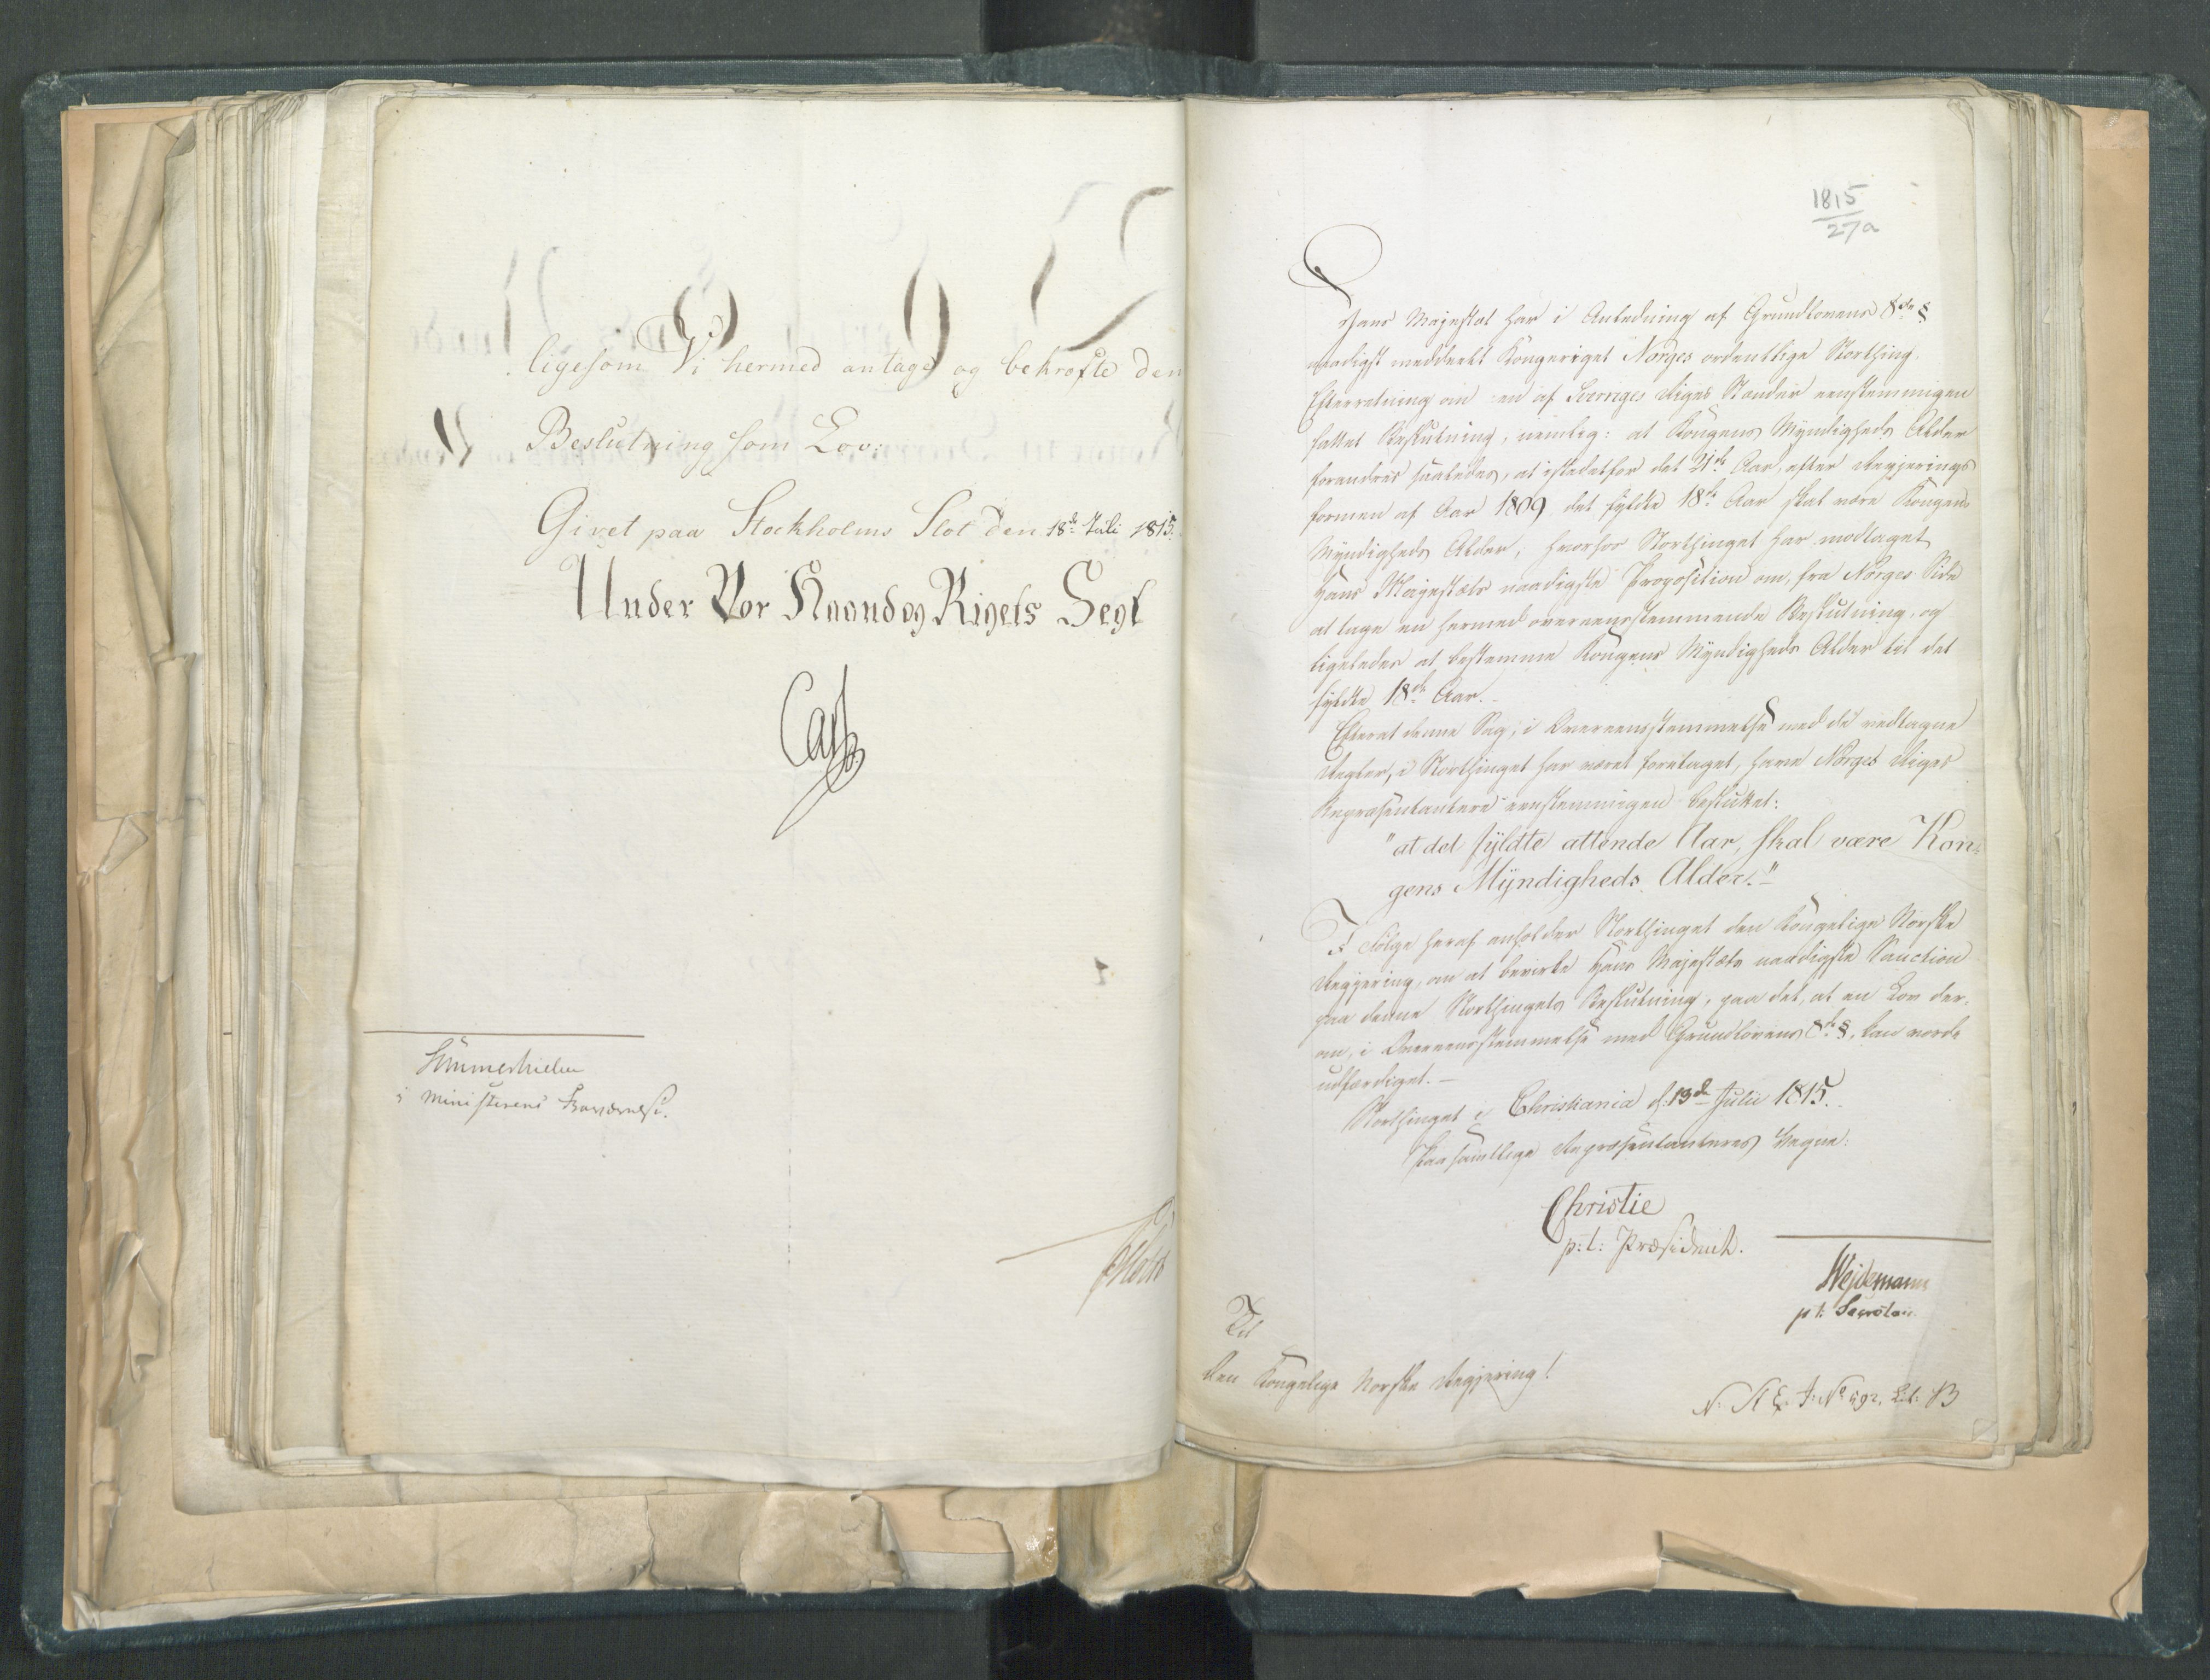 ligesom Vi hermed antage og bekræfte den
Beslutning som Lov.
Givet paa Stockholms Slot den 18de Juli 1815.
Under Vor Haand og Rigets Segl
Carl
Sommerhielm
i Ministerens Fraværelse.
Holst
1815
27a
Hans Majestæt har i Anledning af Grundlovens 8de §
naadigst meddeelt Kongeriget Norges ordentlige Storthing
Efterretning om en af Sverriges Riges Stænder eenstemmigen
fattet Beslutning, nemlig: at Kongens Myndigheds Alder
forandres saaledes, at istedetfor det 21de Aar, efter Regjerings
formen af Aar 1809 det fyldte 18de Aar skal være Kongens
Myndigheds Alder; hvorhos Storthinget har modtaget
Hans Majestæts naadigste Proposition om, fra Norges Side
at tage en hermed overeensstemmende Beslutning, og
ligeledes at bestemme Kongens Myndigheds Alder til det
fyldte 18de Aar.
Efterat denne Sag, i Overeensstemmelse med de vedtagne
Regler, i Storthinget har været foretaget, have Norges Riges
Repræsentantere eenstemmigen besluttet:
"at det fyldte attende Aar, skal være Kon-
gens Myndigheds Alder."
I Følge heraf anholder Storthinget den Kongelige Norske
Regjering, om at bevirke Hans Majestæts naadigste Sanction
paa denne Storthingets Beslutning, paa det, at en Lov der-
om, i Overeensstemmelse med Grundlovens 8de §, kan vorde
udfærdiget.
Storthinget i Christiania d: 13de Julii 1815.
Paa samtlige Repræsentanteres Vegne:
Christie
p: t: Præsident.
Weidemann
p t: Secretair
Til
den Kongelige Norske Regjering!
N: St E. J: No 592, Lit: B